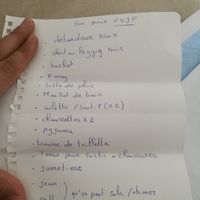 Sac pour EVJF
• débardeur Noir
• short ou legging Noir
• basket
• K.way
• Maillot de bain
• culotte / Sout. g (x2)
• chaussettes x2
• pyjama
• trousse de toilette
• tenue pour sortir + chaussures
• jean
• pull
qu'on peut salir / abimer